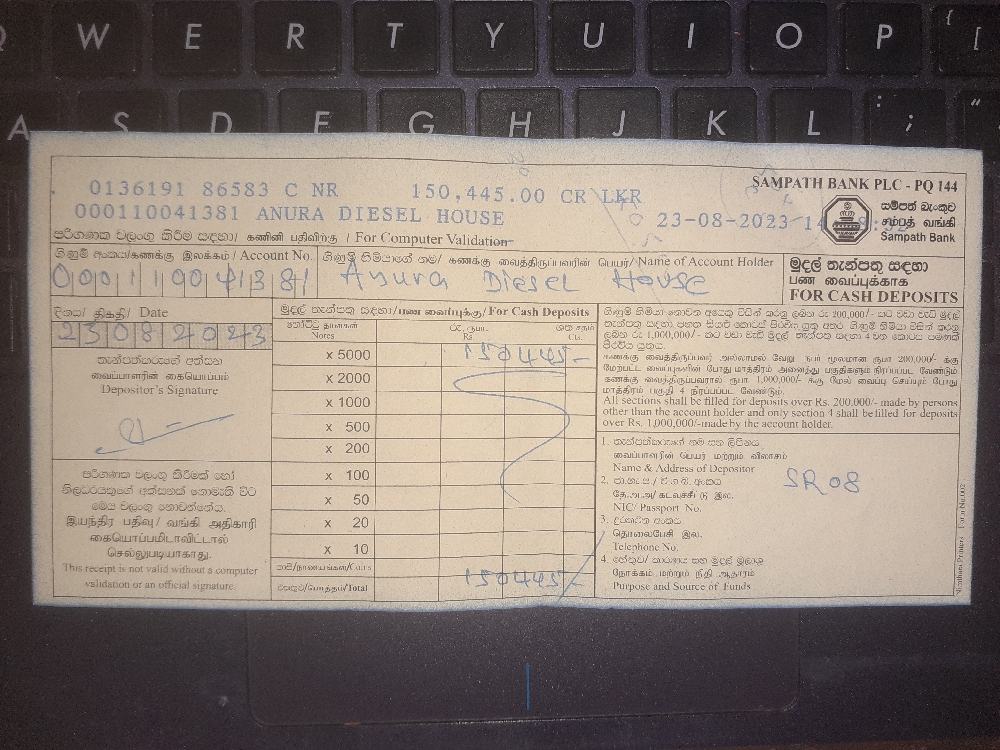 Q W E R T Y U I O P { [
A S D F G H J K L : ; "
0136191 86583 C NR 150,445.00 CR LKR
SAMPATH BANK PLC - PQ 144
000110041381 ANURA DIESEL HOUSE 23-08-2023
සම්පත් බැංකුව
சம்பத் வங்கி
Sampath Bank
පරිගණක වලංගු කිරීම සඳහා/ கணினி பதிவிற்கு / For Computer Validation
ගිණුම් අංකය/கணக்கு இலக்கம்/ Account No.
000110041381
ගිණුම් හිමියාගේ නම/ கணக்கு வைத்திருப்பவரின் பெயர்/ Name of Account Holder
Anura Diesel House
මුදල් තැන්පතු සඳහා
பண வைப்புக்காக
FOR CASH DEPOSITS
දිනය/ திகதி/ Date
23082023
තැන්පත්කරුගේ අත්සන
வைப்பாளரின் கையொப்பம்
Depositor's Signature
පරිගණක වලංගු කිරීමක් හෝ
නිලධරයකුගේ අත්සනක් නොමැති විට
මෙය වලංගු නොවන්නේය.
இயந்திர பதிவு/ வங்கி அதிகாரி
கையொப்பமிடாவிட்டால்
செல்லுபடியாகாது.
This receipt is not valid without a computer
validation or an official signature.
මුදල් තැන්පතු සඳහා/பண வைப்புக்கு/ For Cash Deposits
නෝට්ටු தாள்கள்
Notes
රු. ரூபா.
Rs
ශත சதம்
Cts.
x 5000 150445-
x 2000
x 1000
x 500
x 200
x 100
x 50
x 20
x 10
කාසි/நாணயங்கள்/Coins
එකතුව/மொத்தம்/Total 150445/-
All sections shall be filled for deposits over Rs. 200.000/- made by persons
other than the account holder and only section 4 shall be filled for deposits
over Rs. 1,000,000/-made by the account holder.
1. තැන්පත්කරුගේ නම සහ ලිපිනය
வைப்பாளரின் பெயர் மற்றும் விலாசம்
Name & Address of Depositor
SR08
2.
தே.அ.அ/ கடவுச்சீட்டு இல.
NIC/ Passport No.
3. දුරකථන අංකය
தொலைபேசி இல.
Telephone No.
4.
நோக்கம் மற்றும் நிதி ஆதாரம்
Purpose and Source of Funds